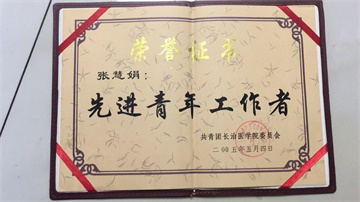 荣誉证书
张慧娟：
先进青年工作者
共青团长治医学院委员会
二〇〇五年五月四日